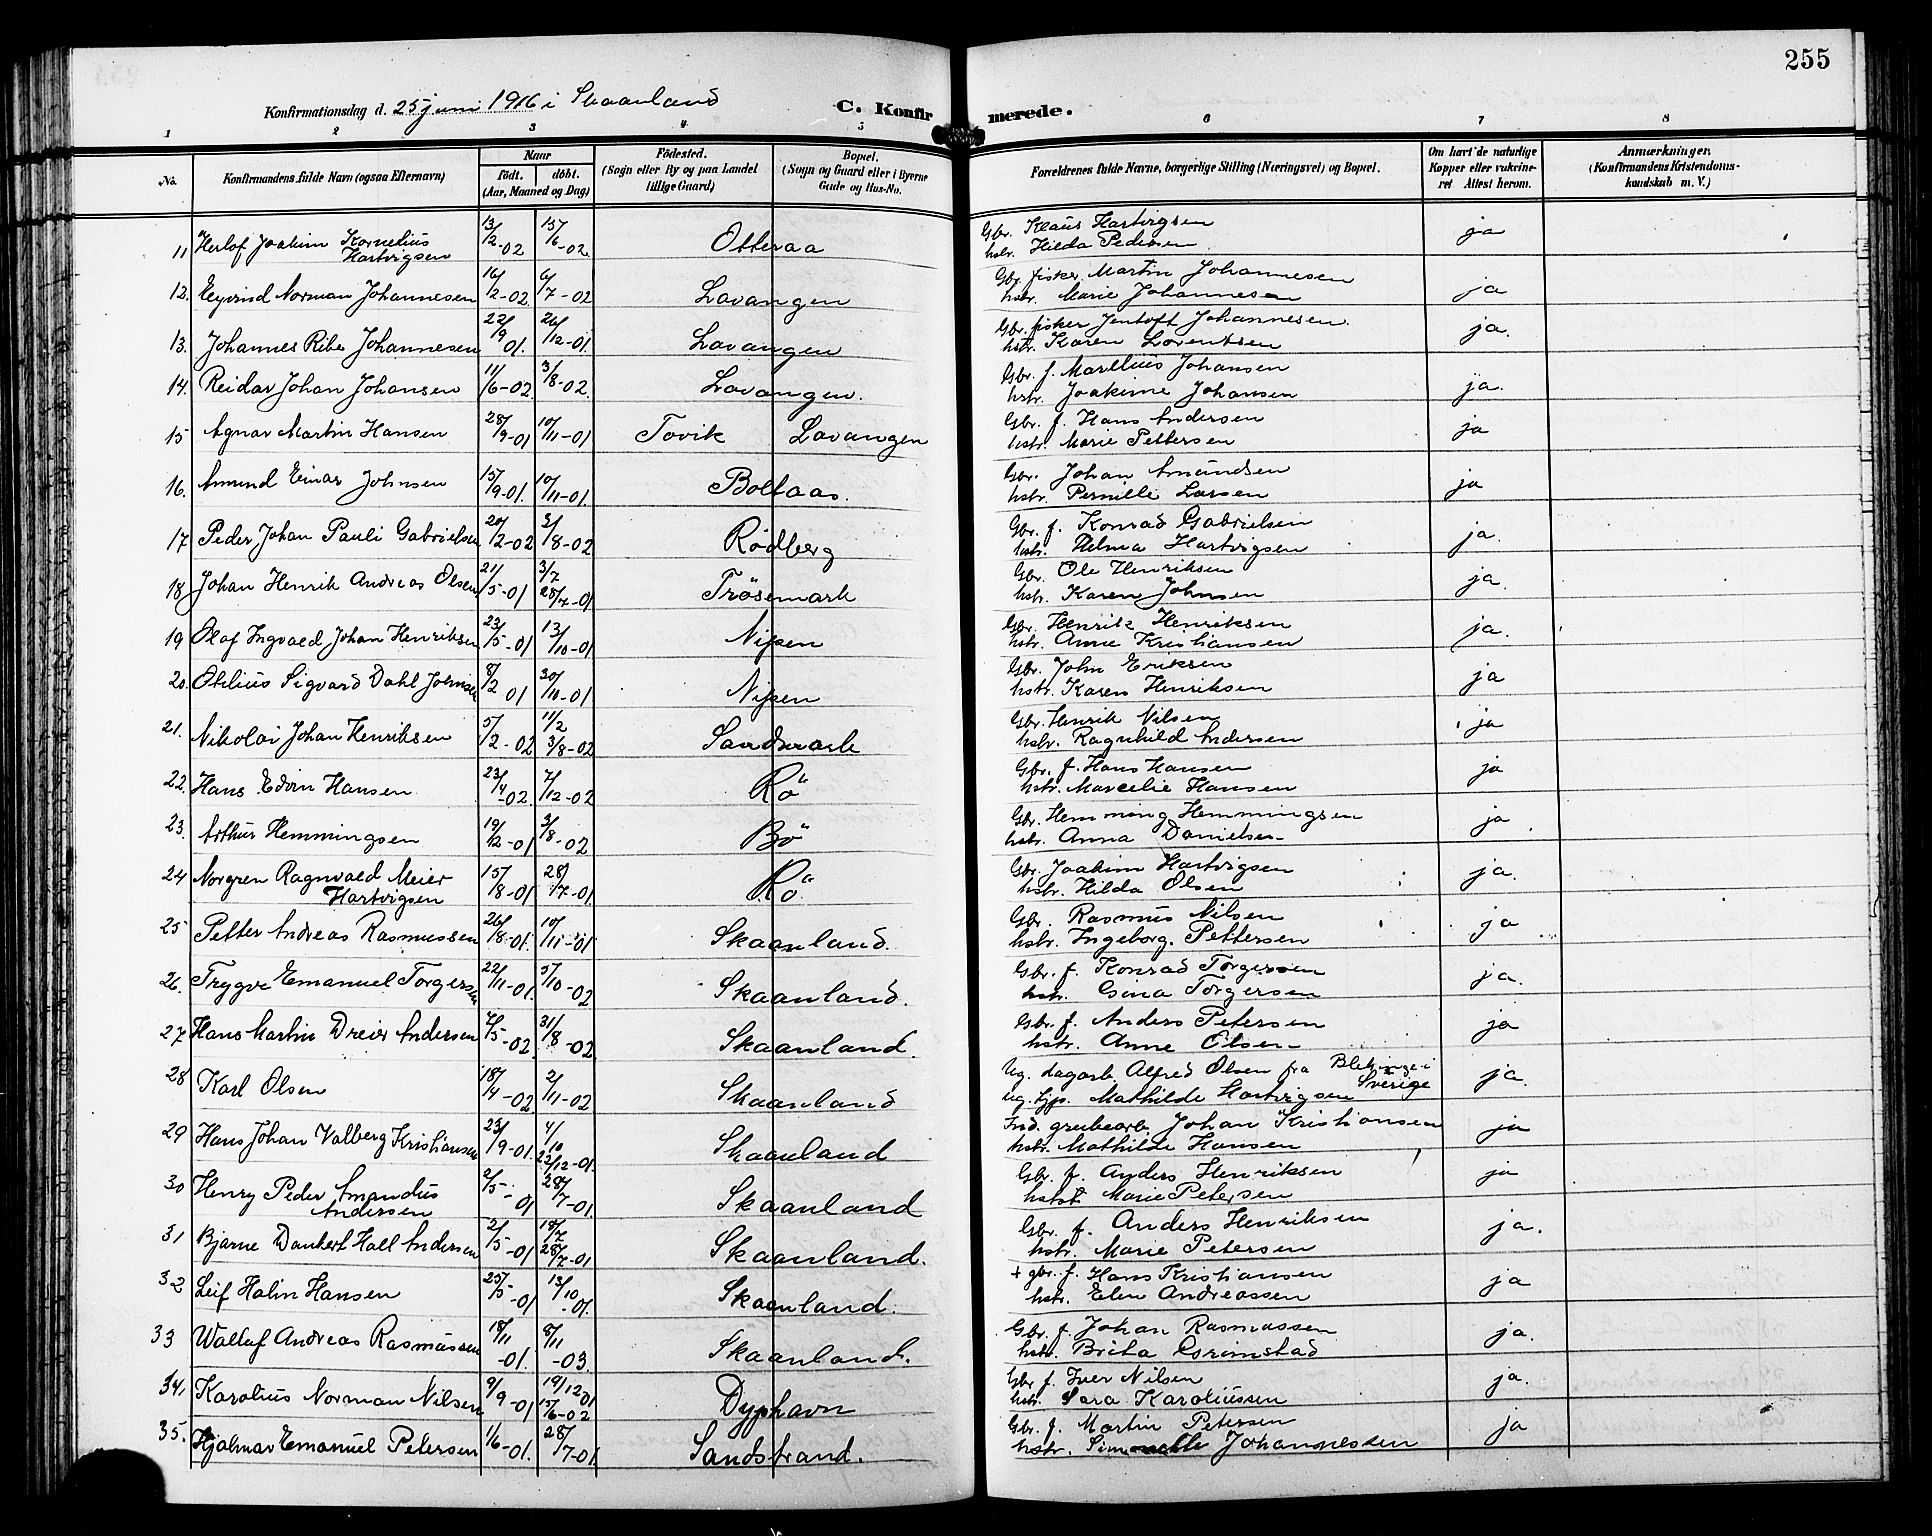 255
Konfirmationsdag d. 25 juni 1916 i Skaanland
C. Konfirmerede.
1 2 3 4 5 6 7 8
No.
Konfirmandens fulde Navn (ogsaa Efternavn)
Naar
født. døbt.
(Aar, Maaned og Dag)
Fødested.
(Sogn eller By og paa Landet
tillige Gaard)
Bopæl.
(Sogn og Gaard eller i Byerne
Gade og Hus-No.
Forældrenes fulde Navne, borgerlige Stilling (Næringsvei) og Bopæl.
Om havt de naturlige
Kopper eller vaccine-
ret Attest herom.
Anmærkninger.
(Konfirmandens Kristendoms-
kundskab m. V.)
11 Herlof Joakim Kornelius Hartvigsen 13/2-02 15/6-02 Otteraa Gbr. Klaus Hartvigsen ja
hstr. Hilda Pedersen
12. Eyvind Norman Johannesen 16/2-02 6/7-02 Lavangen Gbr. fisker Martin Johannesen ja
hstr. Marie Johannesen
13. Johannes Ribe Johannesen 22/9 01. 26/12-01. Lavangen Gbr. fisker Jentoft Johannesen. ja.
hstr. Karen Lorentsen
14. Reidar Johan Johansen 11/6-02 3/8-02 Lavangen. Gbr. f. Marelius Johansen ja.
hstr. Joakime Johansen
15 Agnar Martin Hansen 28/9-01 10/11-01 Tovik Lavangen Gbr. f. Hans Andersen ja
hstr. Marie Pettersen
16. Amund Einar Johnsen 15/9-01. 10/11-01. Boltaas. Gbr. Johan Amundsen ja
hstr. Pernille Larsen
17 Peder Johan Pauli Gabrielsen 20/2-02 3/8-02 Rödberg Gbr. f. Konrad Gabrielsen ja.
hstr. Helma Hartvigsen
18 Johan Henrik Andreas Olsen 21/5-01 3/7 28/7-01 Trösemark Gbr. Ole Henriksen ja.
hstr. Karen Johnsen
19 Olaf Ingvald Johan Henriksen 23/5-01 13/10-01 Nipen Gbr. Henrik Henriksen ja.
hstr. Anne Kristiansen
20. Otelius Sigvard Dahl Johnsen 8/2 01 30/10-01 Nipen Gbr. John Eriksen ja
hstr. Karen Henriksen
21. Nikolai Johan Henriksen 5/2-02 11/2 3/8-02 Sandmark Gbr. Henrik Nilsen ja
hstr. Ragnhild Andersen
22. Hans Edvin Hansen 23/4-02. 7/12-02 Rö Gbr. f. Hans Hansen ja
hstr. Marcelie Hansen
23. Arthur Hemmingsen 19/12-01 3/8-02 Bö Gbr. Hemming Hemmingsen ja
hstr. Anna Danielsen
24 Norgren Ragnvald Meier Hartvigsen 15/8-01 28/7-01. Rö Gbr. Joakim Hartvigsen ja.
hstr. Hilda Olsen
25 Petter Andreas Rasmussen 26/8-01. 10/11-01 Skaanland. Gbr. Rasmus Nilsen ja
hstr. Ingeborg Pettersen
26. Trygve Emanuel Torgersen 22/11-01. 5/10-02 Skaanland. Gbr. f. Konrad Torgersen ja.
hstr. Gina Torgersen
27 Hans Martin Dreier Andersen 7/5-02. 31/8-02 Skaanland. Gbr. f. Anders Petersen ja
hstr. Anne Olsen
28 Karl Olsen 18/4-02. 2/11-02 Skaanland Ug. dagarb. Alfred Olsen fra Blekinge i Sverige ja.
Ug. tjp. Mathilde Hartvigsen
29 Hans Johan Valberg Kristiansen 23/9-01. 4/10 22/12-01. Skaanland Ind. grubearb. Johan Kristiansen ja
hstr. Mathilde Hansen
30 Henry Peder Amandus Andersen 2/5-01 28/7-01. Skaanland Gbr. f. Anders Henriksen ja
hstr. Marie Petersen
31 Bjarne Dankert Hall Andersen 2/5-01 18/7 28/7-01 Skaanland. Gbr. f. Anders Henriksen ja.
hstr. Marie Petersen
32 Leif Halin Hansen 25/5-01 13/10-01. Skaanland. + gbr. f. Hans Kristiansen ja
hstr. Elen Andreassen
33 Wallaf Andreas Rasmussen 18/11-01. 8/11-03. Skaanland. Gbr. f. Johan Rasmussen ja.
hstr. Brita Grimstad
34. Karolius Norman Nilsen 9/9-01 19/12 01 15/6-02 Dyphavn Gbr. f. Iver Nilsen ja.
hstr. Sara Karoliussen
35. Hjalmar Emanuel Petersen 1/6-01. 28/7-01. Sandstrand. Gbr. f. Martin Petersen ja
hstr. Johannessen